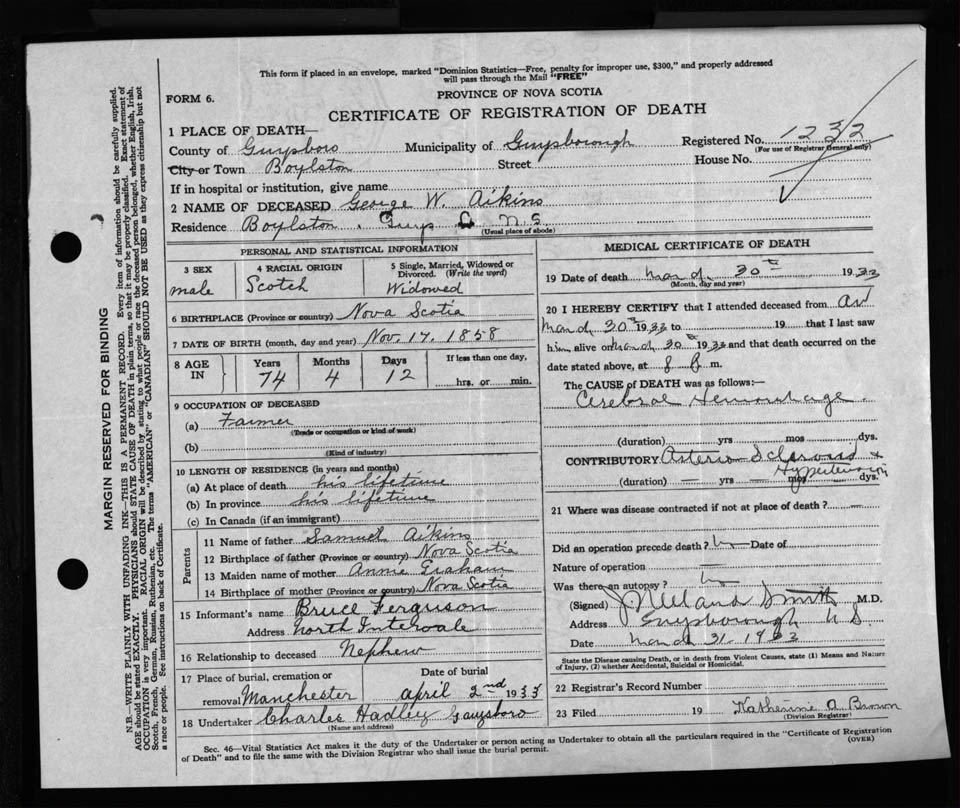 This form if placed in an envelope, marked "Dominion Statistics—Free, penalty for improper use, $300," and properly addressed
will pass through the Mail "FREE"
FORM 6.
PROVINCE OF NOVA SCOTIA
CERTIFICATE OF REGISTRATION OF DEATH
1 PLACE OF DEATH—
County of Guysboro Municipality of Guysborough Registered No. 1232
(For use of Registrar General only)
City or Town Boylston Street House No.
If in hospital or institution, give name
2 NAME OF DECEASED George W. Aikins
Residence Boylston, Guys Co. N.S.
(Usual place of abode)
PERSONAL AND STATISTICAL INFORMATION
3 SEX 4 RACIAL ORIGIN 5 Single, Married, Widowed or Divorced. (Write the word)
male Scotch Widowed
6 BIRTHPLACE (Province or country) Nova Scotia
7 DATE OF BIRTH (month, day and year) Nov. 17, 1858
8 AGE IN Years Months Days If less than one day,
74 4 12 hrs. or min.
9 OCCUPATION OF DECEASED
(a) Farmer
(Trade or occupation or kind of work)
(b)
(Kind of industry)
10 LENGTH OF RESIDENCE (in years and months)
(a) At place of death his lifetime
(b) In province his lifetime
(c) In Canada (if an immigrant)
Parents
11 Name of father Samuel Aikins
12 Birthplace of father (Province or country) Nova Scotia
13 Maiden name of mother Annie Graham
14 Birthplace of mother (Province or country) Nova Scotia
15 Informant's name Bruce Ferguson
Address North Intervale
16 Relationship to deceased Nephew
17 Place of burial, cremation or Date of burial
removal Manchester april 2nd 1933
18 Undertaker Charles Hadley Guysboro
(Name and address)
MEDICAL CERTIFICATE OF DEATH
19 Date of death March 30th 1933
(Month, day and year)
20 I HEREBY CERTIFY that I attended deceased from
March 30th 1933 to 19 that I last saw
him alive on March 30th 1933 and that death occurred on the
date stated above, at 8 P. m.
The CAUSE of DEATH was as follows:—
Cerebral Hemorrhage
(duration) yrs mos dys.
CONTRIBUTORY Arterio Sclerosis &
Hypertension
(duration) — yrs — mos dys.
21 Where was disease contracted if not at place of death? —
Did an operation precede death? No Date of
Nature of operation —
Was there an autopsy? no
(Signed) Smith M.D.
Address Guysborough N.S.
Date March 31 1933
State the Disease causing Death, or in death from Violent Causes, state (1) Means and Nature
of Injury, (2) whether Accidental, Suicidal or Homicidal.
22 Registrar's Record Number
23 Filed 19 Katherine A Brown
(Division Registrar)
Sec. 46—Vital Statistics Act makes it the duty of the Undertaker or person acting as Undertaker to obtain all the particulars required in the "Certificate of Registration
of Death" and to file the same with the Division Registrar who shall issue the burial permit. (OVER)
MARGIN RESERVED FOR BINDING
N.B.—WRITE PLAINLY WITH UNFADING INK—THIS IS A PERMANENT RECORD. Every item of information should be carefully supplied.
AGE should be stated EXACTLY. PHYSICIANS should STATE CAUSE OF DEATH in plain terms, so that it may be properly classified. Exact statement of
OCCUPATION is very important. RACIAL ORIGIN will be described by stating to what people or race the deceased person belonged, whether English, Irish,
Scotch, French, German, Russian, Ruthenian, etc. The terms "AMERICAN" or "CANADIAN" SHOULD NOT BE USED as they express citizenship but not
a race or people. See instructions on back of Certificate.